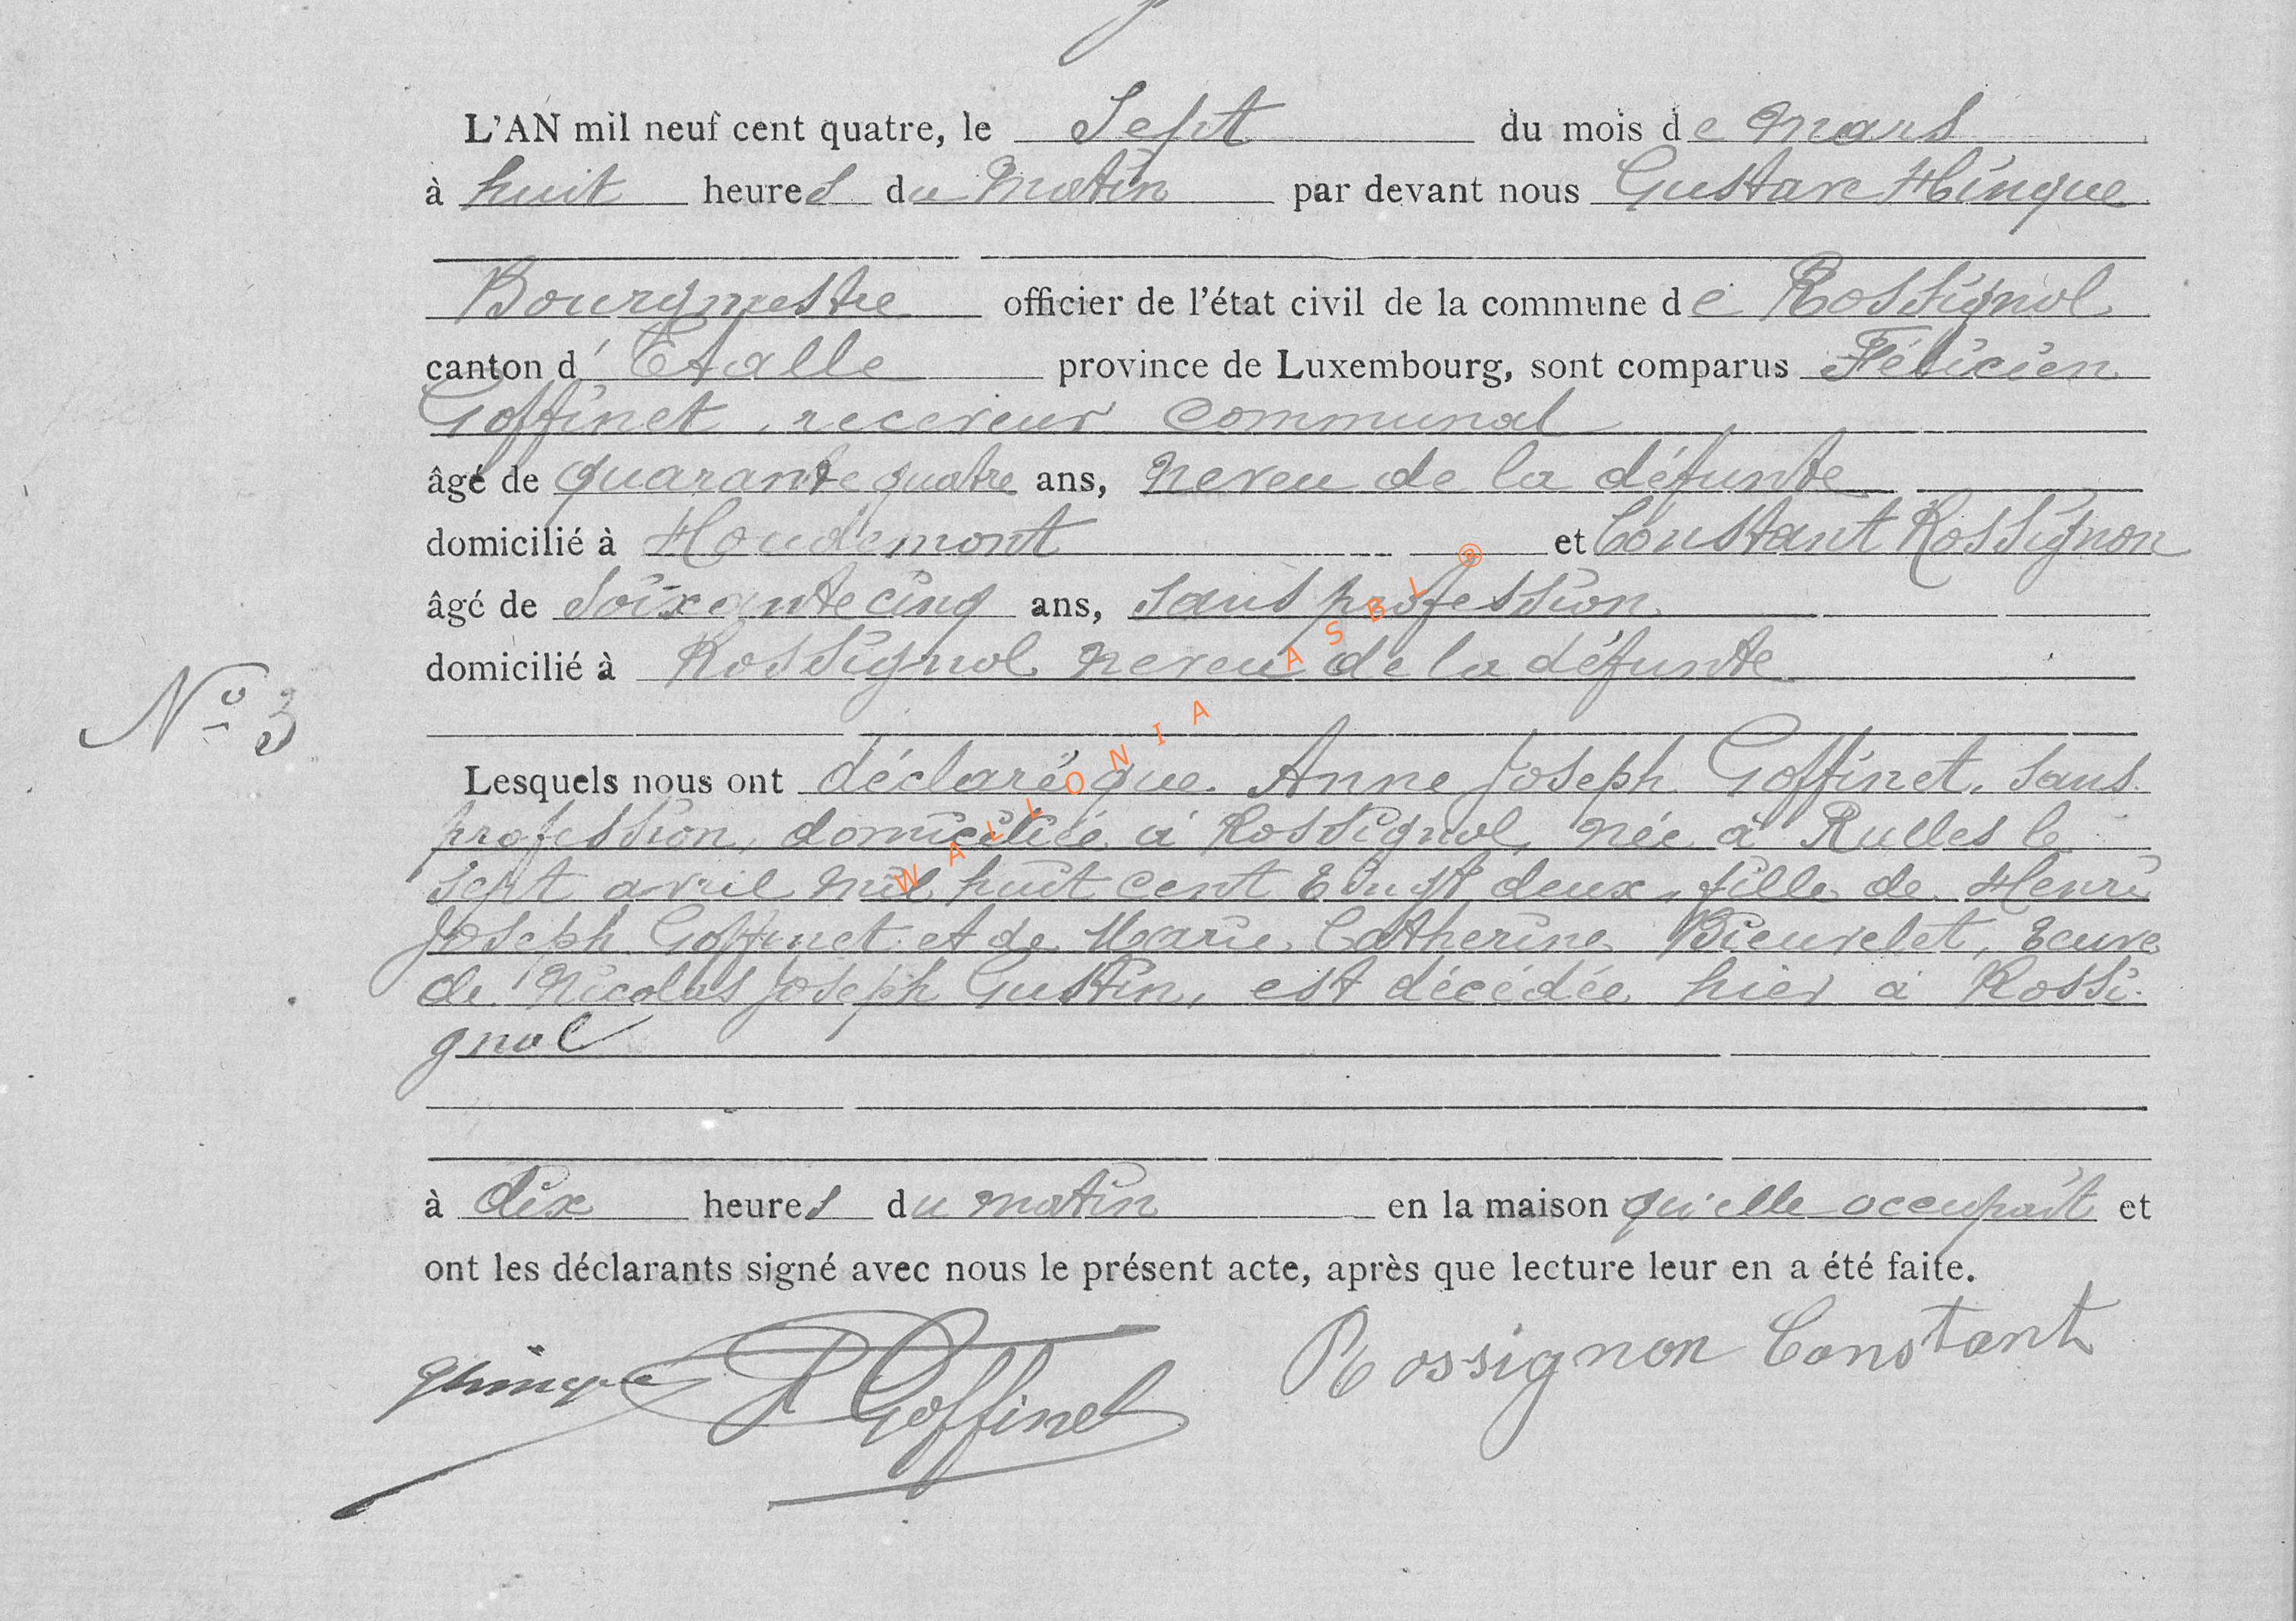 L'AN mil neuf cent quatre, le Sept du mois de Mars
à huit heures du Matin par devant nous Gustave Hinque
Bourgmestre officier de l'état civil de la commune de Rossignol
canton d'Etalle province de Luxembourg, sont comparus Félicien
Goffinet, receveur communal
âgé de quarante quatre ans, Neveu de la défunte
domicilié à Houdemont et Constant Rossignon
âgé de Soixante cinq ans, sans profession
domicilié à Rossignol Neveu de la défunte
N° 3
Lesquels nous ont déclaré que Anne Joseph Goffinet, sans
profession, domiciliée à Rossignol, née à Rulles le
sept avril mil huit cent vingt deux, fille de Henri
Joseph Goffinet et de Marie Catherine Bieuvelet, veuve
de Nicolas Joseph Gustin, est décédée hier à Rossi-
gnol
à dix heures du matin en la maison qu'elle occupait et
ont les déclarants signé avec nous le présent acte, après que lecture leur en a été faite.
GHinque Goffinet Rossignon Constant
WALLONIA ASBL ®